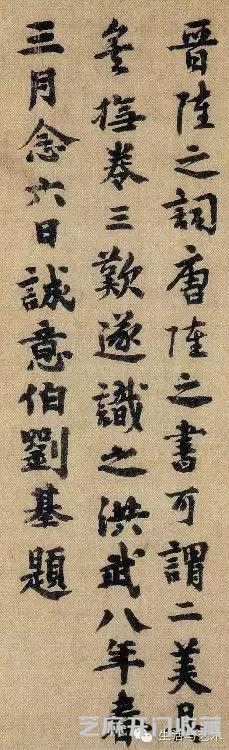 晉陸之詞唐陸之書可謂二美具
矣撫卷三歎遂識之洪武八年春
三月念六日誠意伯劉基題
生活与艺术
芝麻开门收藏